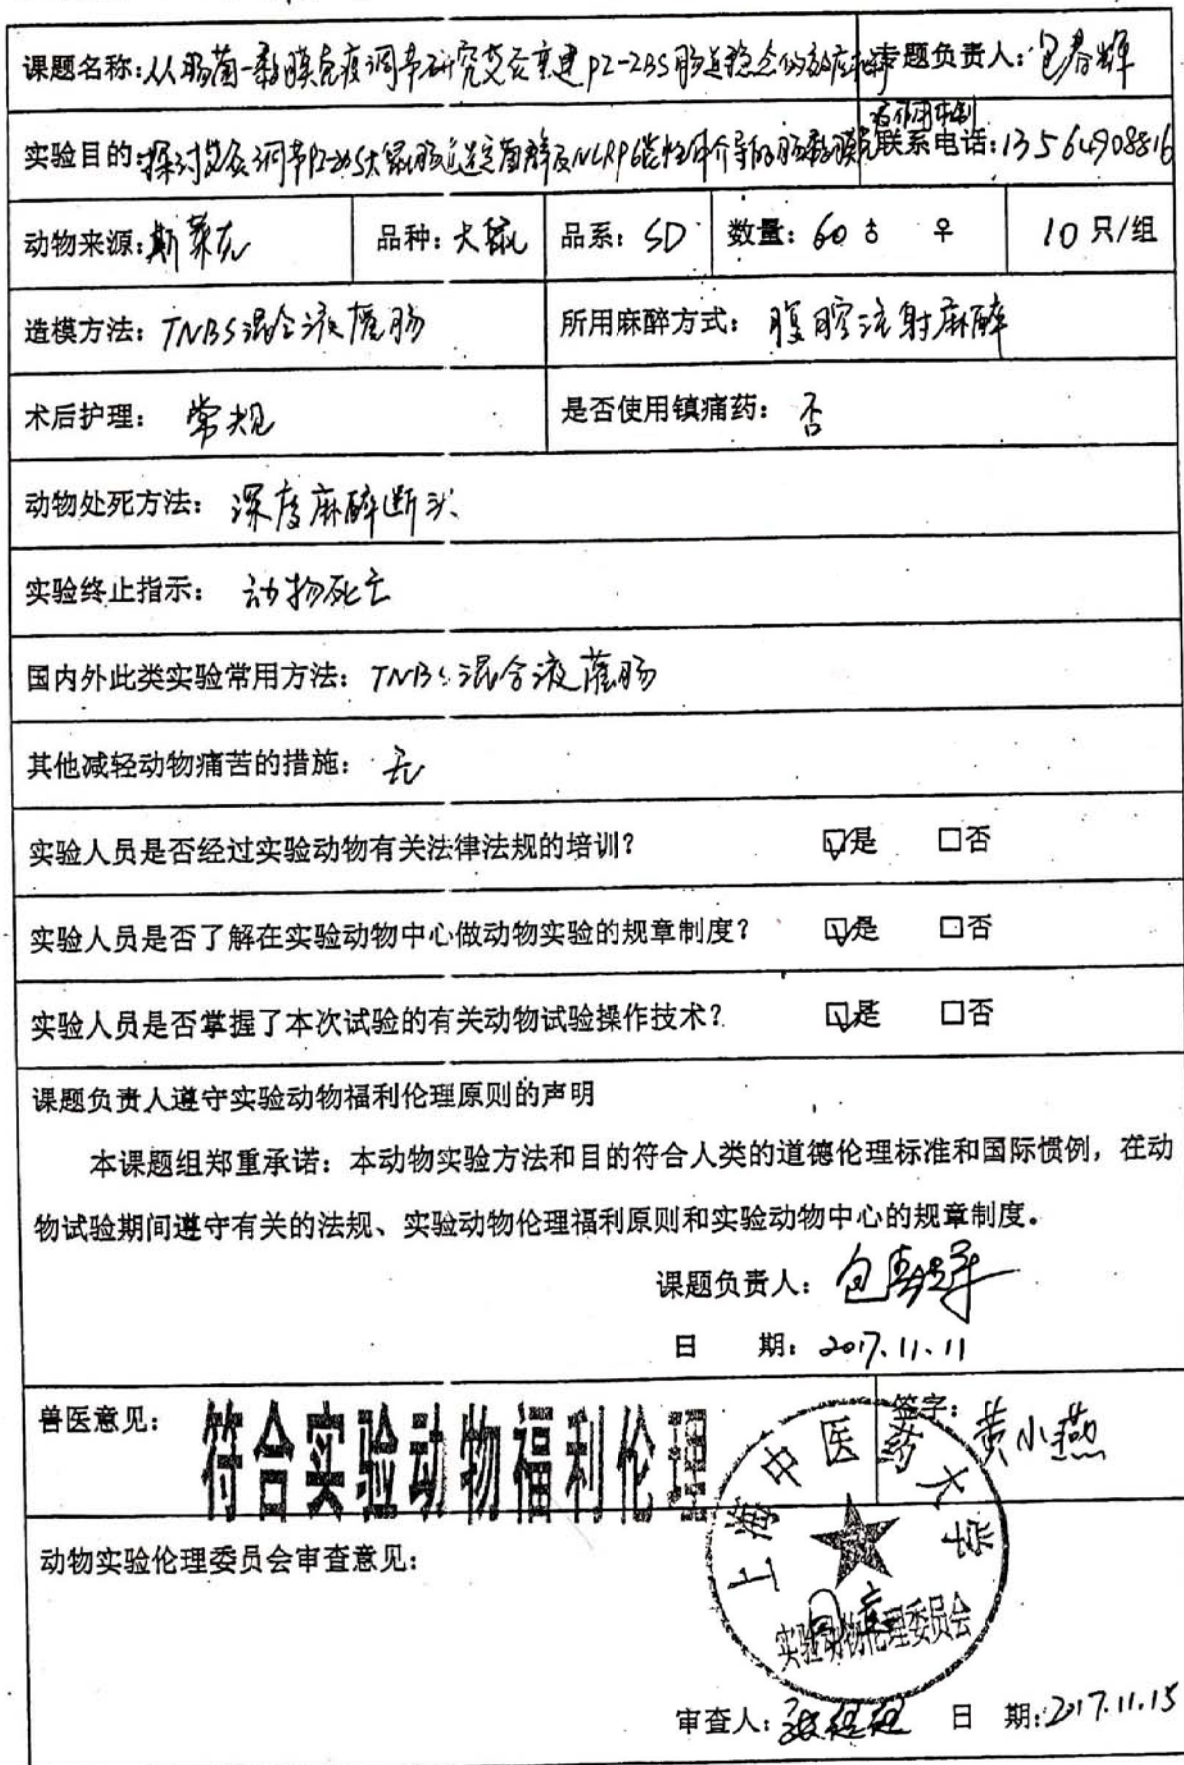 课题名称:从肠菌-黏膜免疫调节研究艾灸重建PI-IBS肠道稳态的效应机制 专题负责人:包春辉
实验目的:探讨艾灸调节PI-IBS大鼠肠道菌群及NLRP6炎性体介导的肠黏膜免疫作用机制 联系电话:13564908816
动物来源:斯莱克 品种:大鼠 品系:SD 数量:60 ♂ ♀ 10只/组
造模方法:TNBS混合液灌肠 所用麻醉方式:腹腔注射麻醉
术后护理:常规 是否使用镇痛药:否
动物处死方法:深度麻醉断头
实验终止指示:动物死亡
国内外此类实验常用方法:TNBS混合液灌肠
其他减轻动物痛苦的措施:无
实验人员是否经过实验动物有关法律法规的培训? ☑是 □否
实验人员是否了解在实验动物中心做动物实验的规章制度? ☑是 □否
实验人员是否掌握了本次试验的有关动物试验操作技术? ☑是 □否
课题负责人遵守实验动物福利伦理原则的声明
本课题组郑重承诺:本动物实验方法和目的符合人类的道德伦理标准和国际惯例,在动
物试验期间遵守有关的法规、实验动物伦理福利原则和实验动物中心的规章制度。
课题负责人:包春辉
日 期:2017.11.11
兽医意见:符合实验动物福利伦理 签字:黄小燕
上海中医药大学
动物实验伦理委员会审查意见:
同意
实验动物伦理委员会
审查人: 日 期:2017.11.15